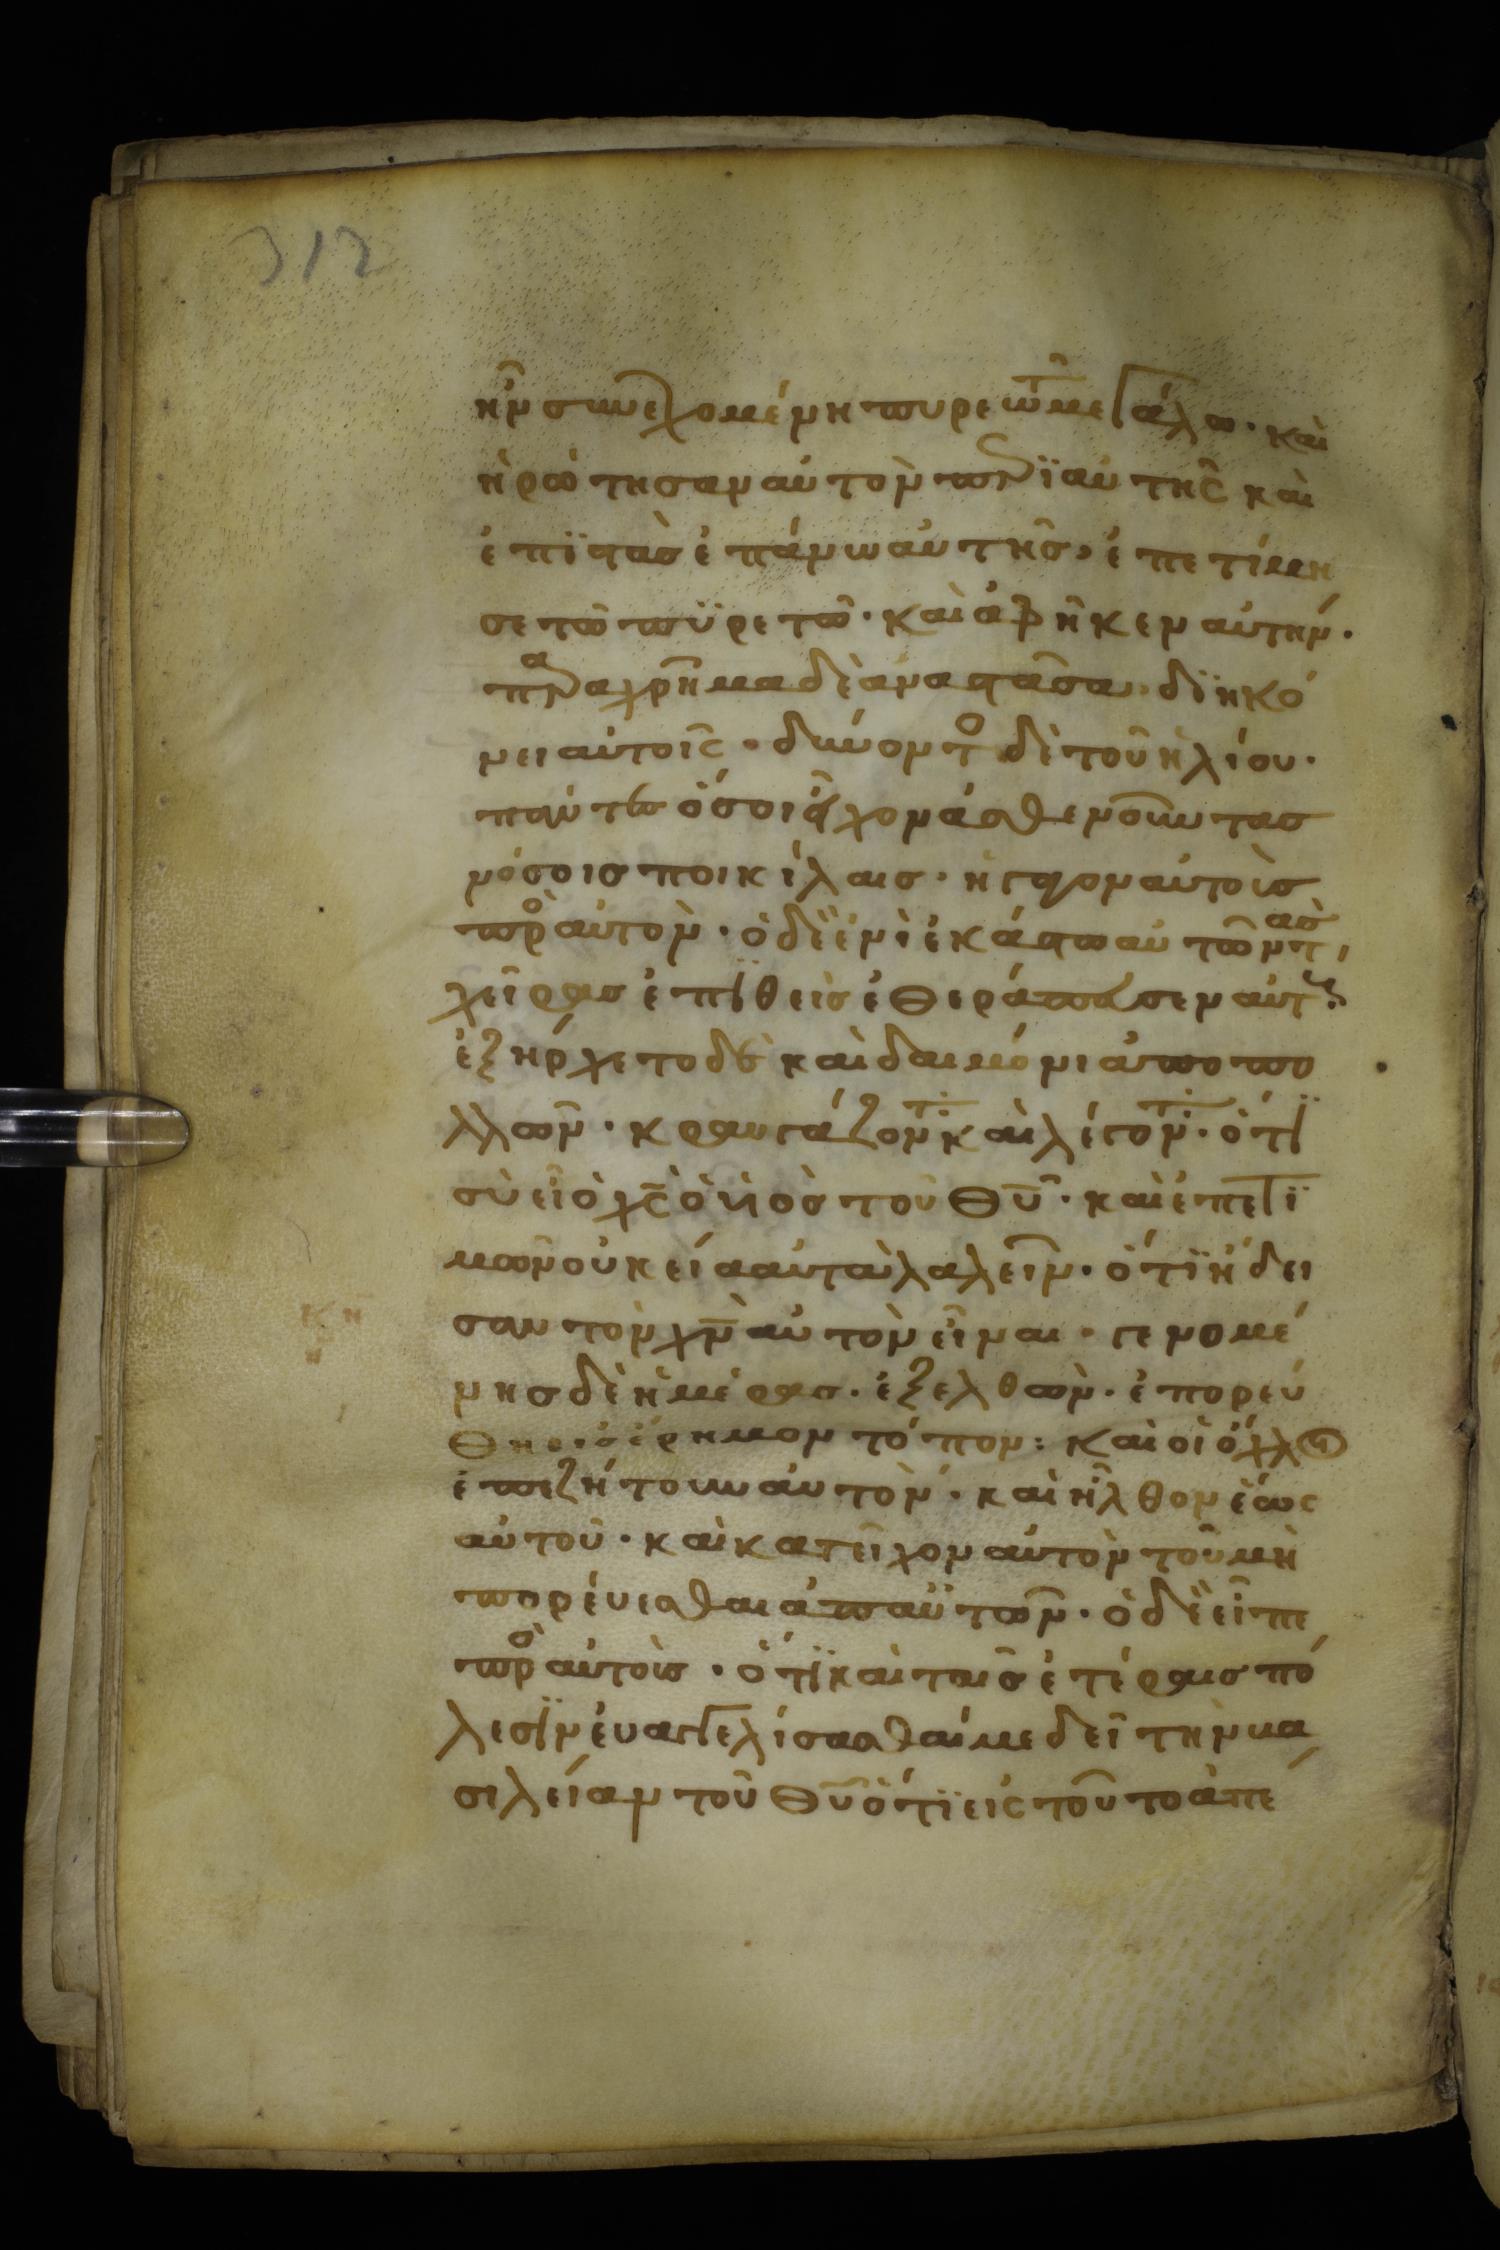 312
ἦν συνεχομένη πυρετῶ μεγάλω · και
ἠρώτησαν αὐτὸν περϊ αὐτῆς και
ἐπϊστὰσ ἐπάνω αὐτῆσ · ἐπετίμη
σε τῶ πϋρετῶ · και ἀφῆκεν αὐτήν ·
παραχρῆμα δὲ ἀναστᾶσα · δϊηκό
νει αὐτοῖς · δύνοντο δὲ τοῦ ἡλίου ·
πάντεσ ὅσοι εἶχον ἀσθενοῦντασ
νόσοισ ποικίλαισ · ἤγαγον αὐτοὺσ
πρὸ αὐτὸν · ὁ δὲ ἑνὶ ἑκάστω αὐτῶν τὰσ
χεῖρασ ἐπϊθεὶσ ἐθεράπευσεν αὐτούσ ·
ἐξήρχετο δὲ καὶ δαιμόνια ἀπο πο
λλῶν · κραυγάζοντ̈ καὶ λέγοντ̈ · ὅτϊ
σὺ εἶ ὁ χ̅ς̅ ὁ ὑιὸσ τοῦ θ̅υ̅ · καὶ ἐπετϊ
μῶν οὐκ εἴα αὐτὰ λαλεῖν · ὅτϊ ἤδει
σαν τὸν χ̅ν̅ αὐτὸν εἶναι · γενομέ
νησ δὲ ἡμέρασ · ἐξελθὼν · ἐπορεύ
θη εισ ἔρημον τόπον : καὶ οἱ ὄχλοι
ἐπεζήτουν αὐτὸν · καὶ ἦλθον ἕως
αὐτοῦ · καὶ κατεῖχον αὐτὸν τοῦ μὴ
πορέυεσθαι ἀπ αὐτῶν · ὁ δὲ εἶπε
πρὸ αὐτοὺσ · ὅτϊ καὶ ταῖσ ἑτέραισ πό
λεσϊν ἐυαγγελίσασθαί με δεῖ τὴν βα
σιλείαν τοῦ θ̅υ̅ ὅτϊ εἰς τοῦτο ἀπέ